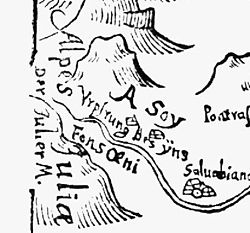 Alpes
Iuliæ
Der Iulier M.
A Soy
Vrsprung Des ÿns
Fons Œni
Pontras
Saluabianc